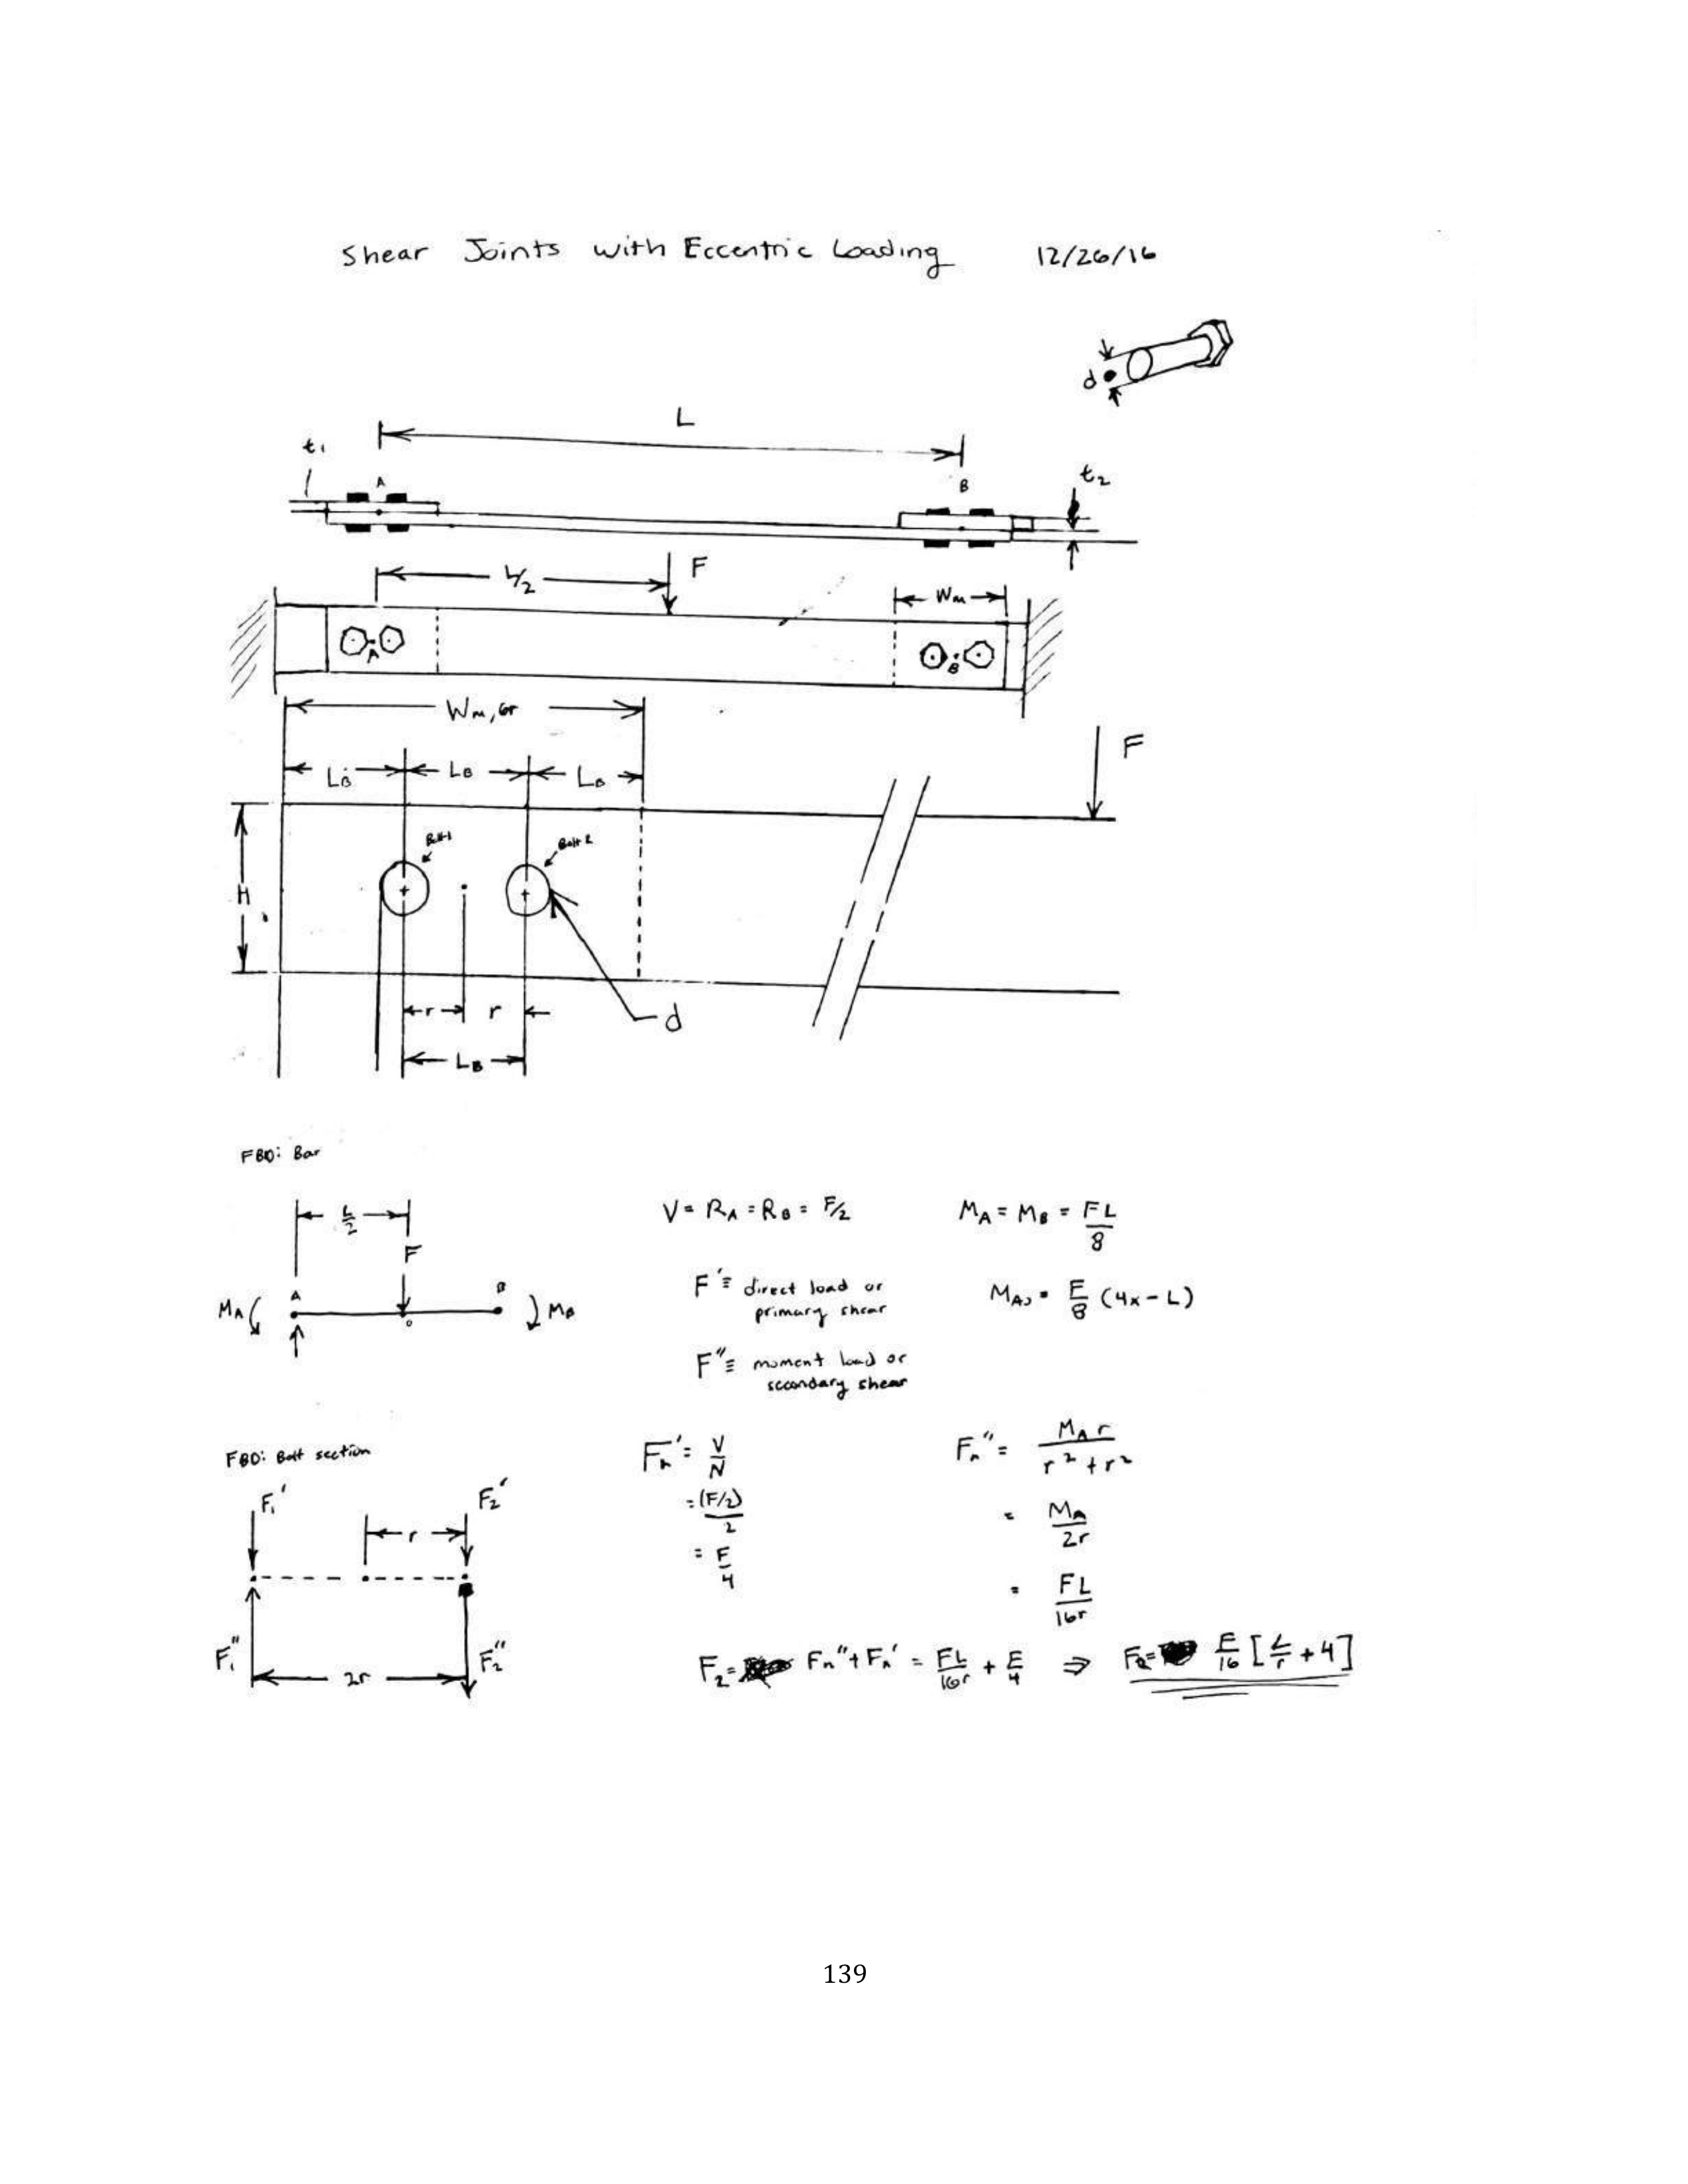 Shear Joints with Eccentric Loading 12/26/16
d
L
t1
A
B
t2
L/2
F
Wm
A
B
Wm,Gr
F
LB LB LB
Bolt 1
Bolt 2
H
r r
d
LB
FBD: Bar
L/2
F
A
B
MA
MB
V = RA = RB = F/2
MA = MB = FL/8
F' ≡ direct load or
primary shear
F'' ≡ moment load or
secondary shear
FBD: Bolt section
F1'
F2'
r
F1''
F2''
2r
Fn' = V/N
= (F/2)/2
= F/4
Fn'' = MA r/(r² + r²)
= MA/2r
= FL/16r
F2 = Fn'' + Fn' = FL/16r + F/4 ⇒ F2 = F/16 [L/r + 4]
139